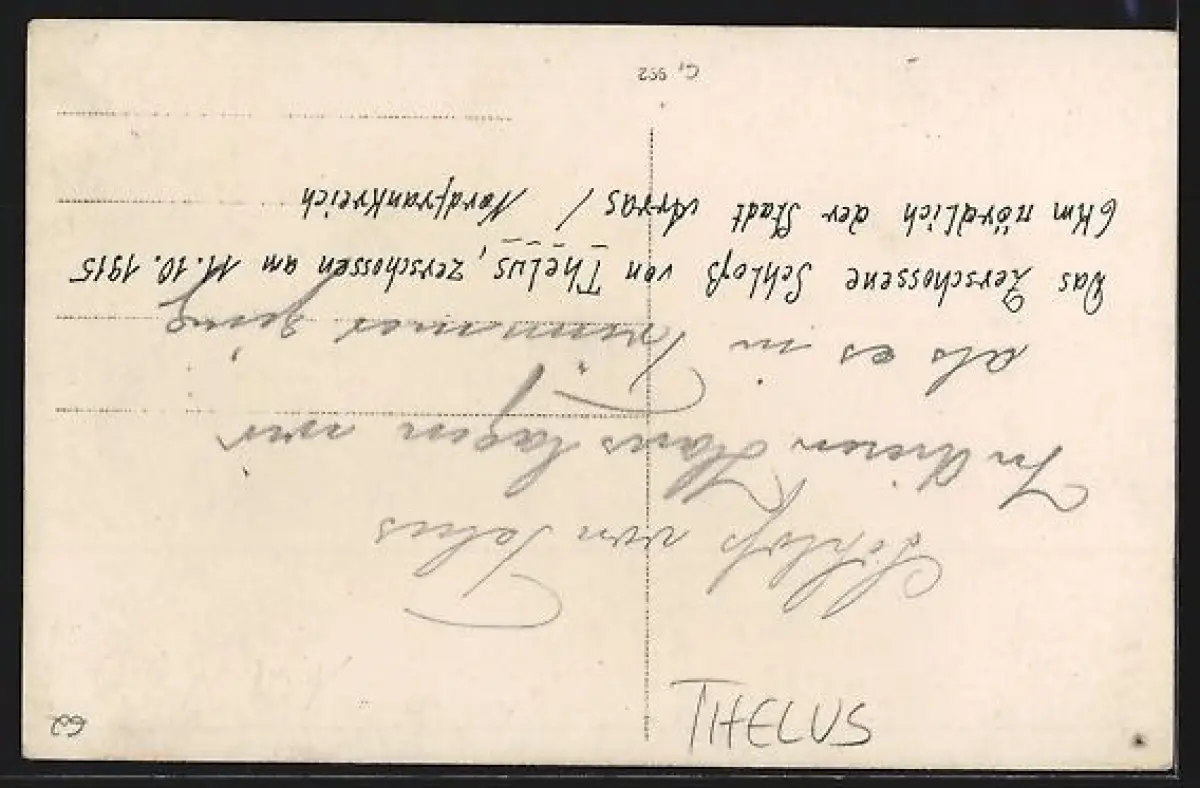 62
Schloß von Telus
In diesem Haus lagen wir
als es in Trümmer ging
Das Zerschossene Schloß von Thelus, zerschossen am 11.10.1915
6 Km nördlich der Stadt Arras / Nordfrankreich
THELUS